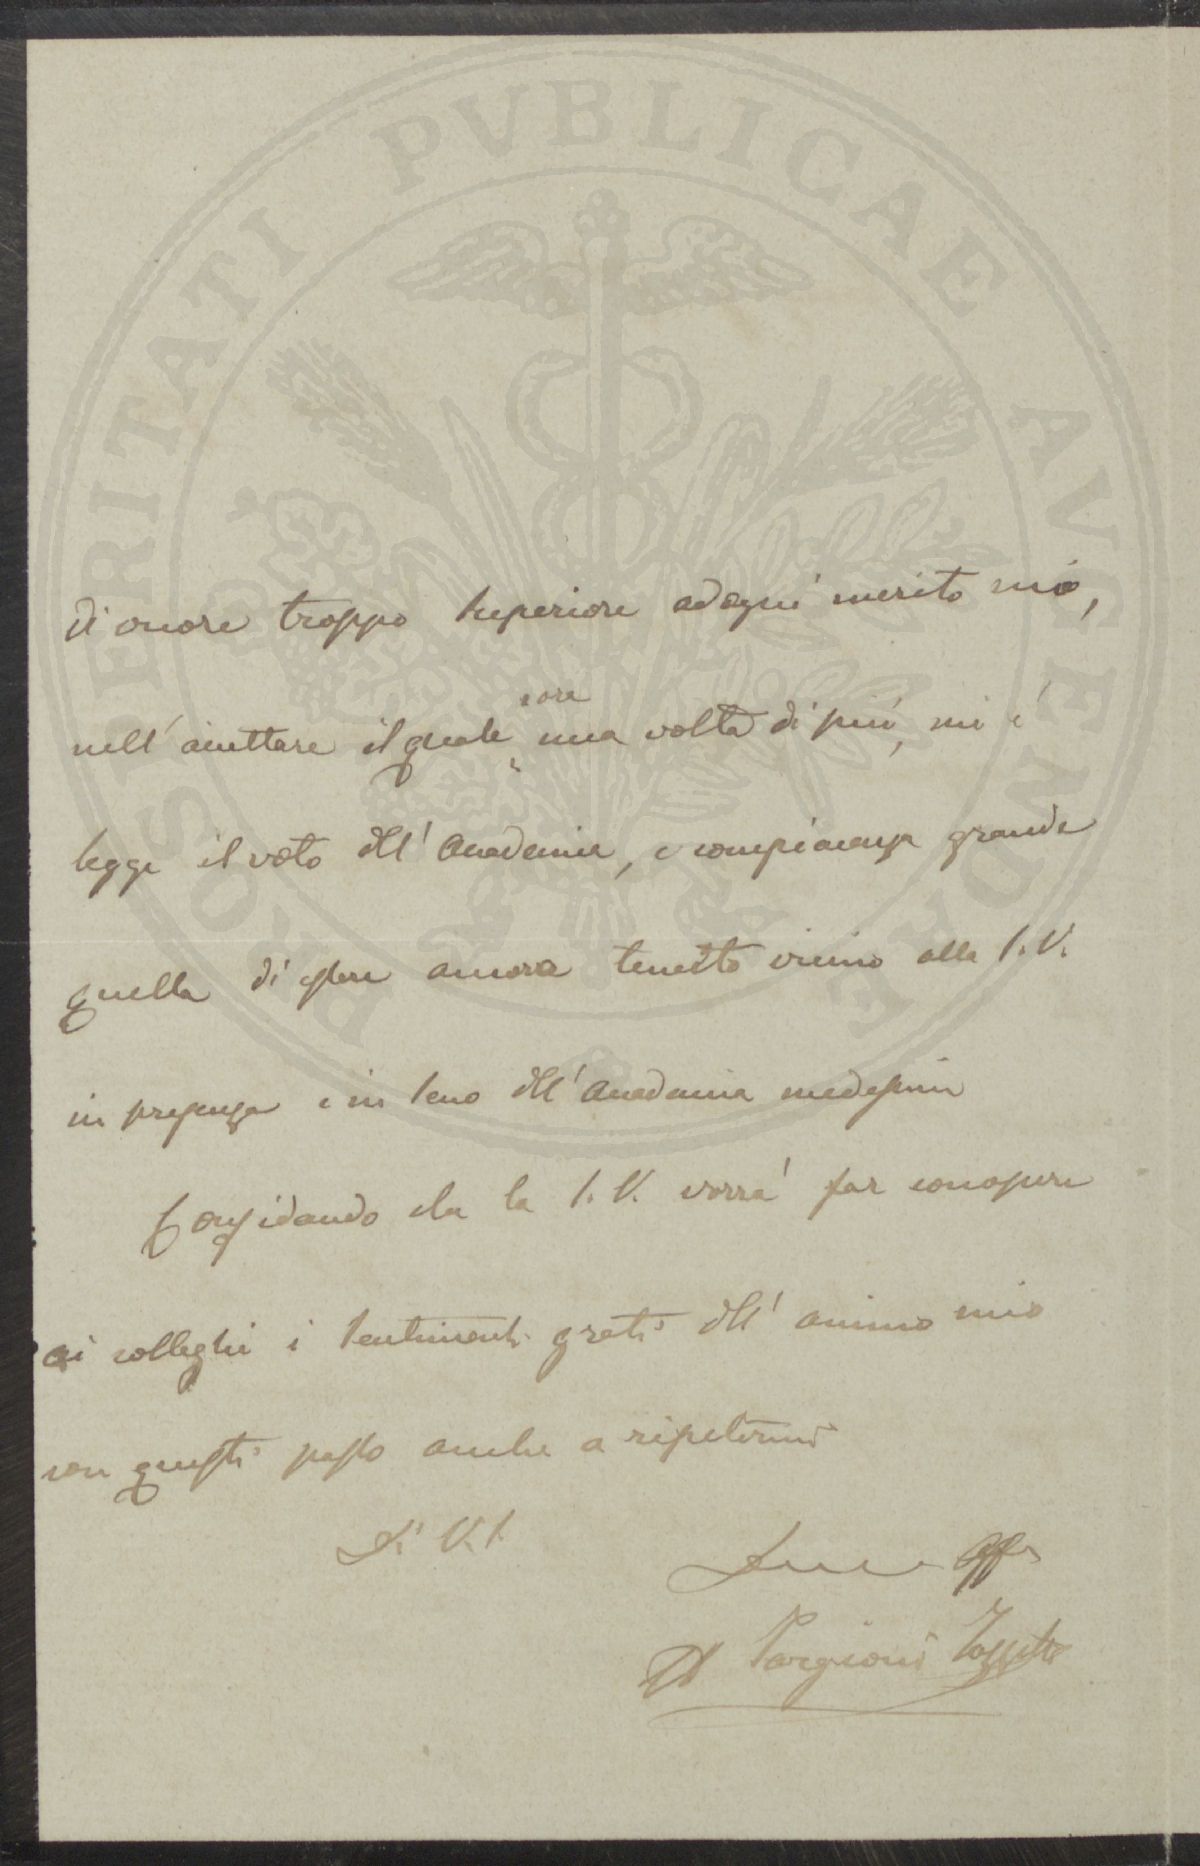 PROSPERITATI PVBLICAE AVGENDAE
di onore troppo superiore ad ogni merito mio,
nell' accettare il quale una volta di più, mi è
legge il voto dell' Accademia, e compiacenza grande
quella di essere ancora tenuto vicino alla S. V.
in presenza e in seno dell' Accademia medesima
Confidando che la S. V. vorrà far conoscere
ai colleghi i sentimenti grati dell' animo mio
con questi passo anche a ripetermi
Di V. S.
A Targioni Tozzetti